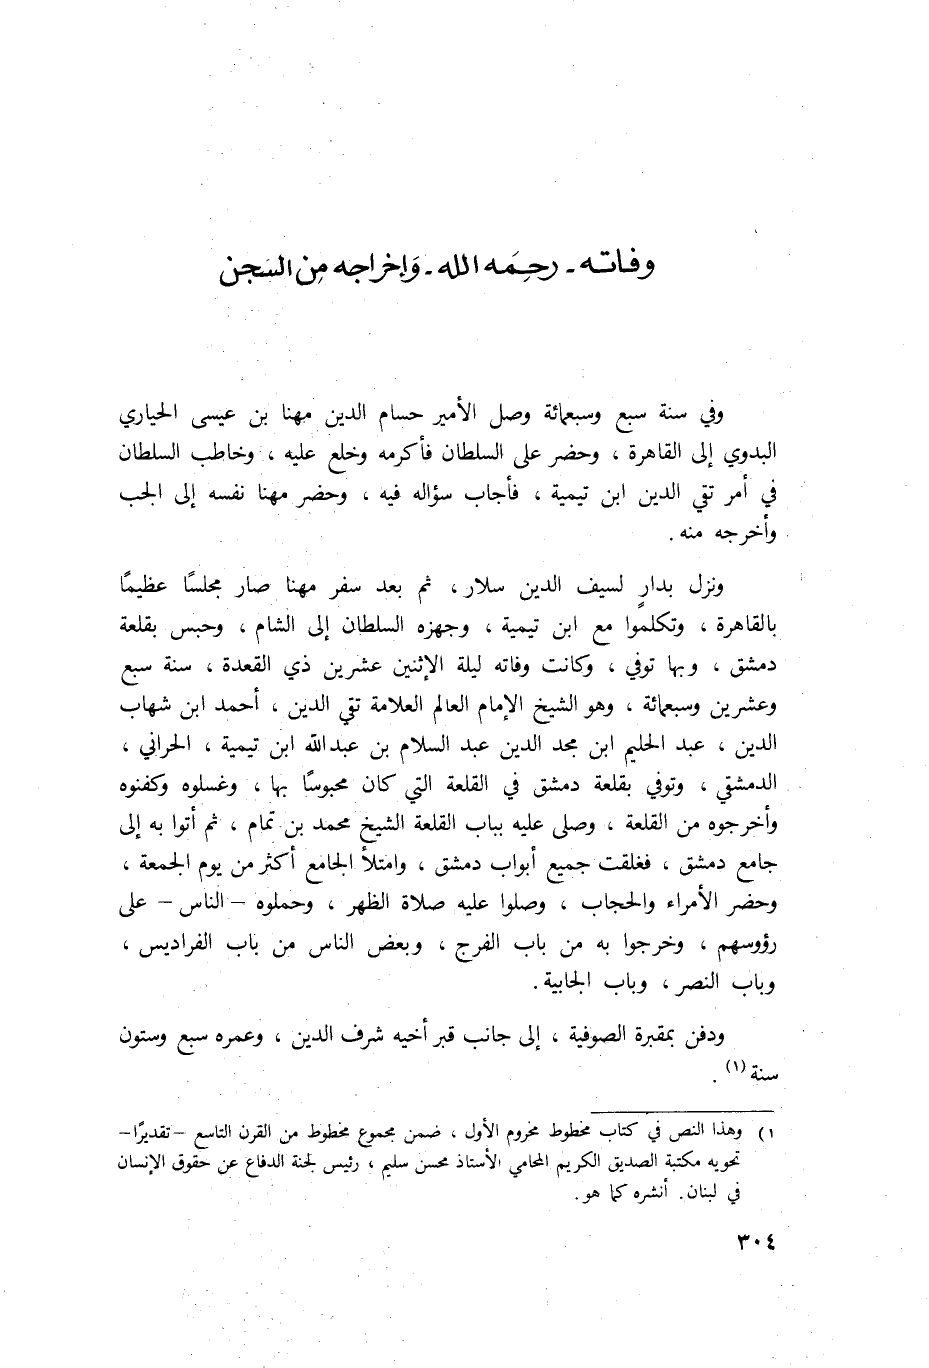 وفاته - رحِمَه الله - وَإخراجه مِن السَجن
وفي سنة سبع وسبعمائة وصل الأمير حسام الدين مهنا بن عيسى الحياري
البدوي إلى القاهرة ، وحضر على السلطان فأكرمه وخلع عليه ، وخاطب السلطان
في أمر تقي الدين ابن تيمية ، فأجاب سؤاله فيه ، وحضر مهنا نفسه إلى الجب
وأخرجه منه .
ونزل بدارٍ لسيف الدين سلار ، ثم بعد سفر مهنا صار مجلسًا عظيمًا
بالقاهرة ، وتكلموا مع ابن تيمية ، وجهزه السلطان إلى الشام ، وحبس بقلعة
دمشق ، وبها توفي ، وكانت وفاته ليلة الإثنين عشرين ذي القعدة ، سنة سبع
وعشرين وسبعمائة ، وهو الشيخ الإمام العالم العلامة تقي الدين ، أحمد ابن شهاب
الدين ، عبد الحليم ابن مجد الدين عبد السلام بن عبدالله ابن تيمية ، الحراني ،
الدمشقي ، وتوفي بقلعة دمشق في القلعة التي كان محبوسًا بها ، وغسلوه وكفنوه
وأخرجوه من القلعة ، وصلى عليه بباب القلعة الشيخ محمد بن تمام ، ثم أتوا به إلى
جامع دمشق ، فغلقت جميع أبواب دمشق ، وامتلأ الجامع أكثر من يوم الجمعة ،
وحضر الأمراء والحجاب ، وصلوا عليه صلاة الظهر ، وحملوه – الناس – على
رؤوسهم ، وخرجوا به من باب الفرج ، وبعض الناس من باب الفراديس ،
وباب النصر ، وباب الجابية .
ودفن بمقبرة الصوفية ، إلى جانب قبر أخيه شرف الدين ، وعمره سبع وستون
سنة (١) .
١) وهذا النص في كتاب مخطوط مخروم الأول ، ضمن مجموع مخطوط من القرن التاسع – تقديرًا –
تحويه مكتبة الصديق الكريم المحامي الأستاذ محسن سليم ، رئيس لجنة الدفاع عن حقوق الإنسان
في لبنان . أنشره كما هو .
٣٠٤